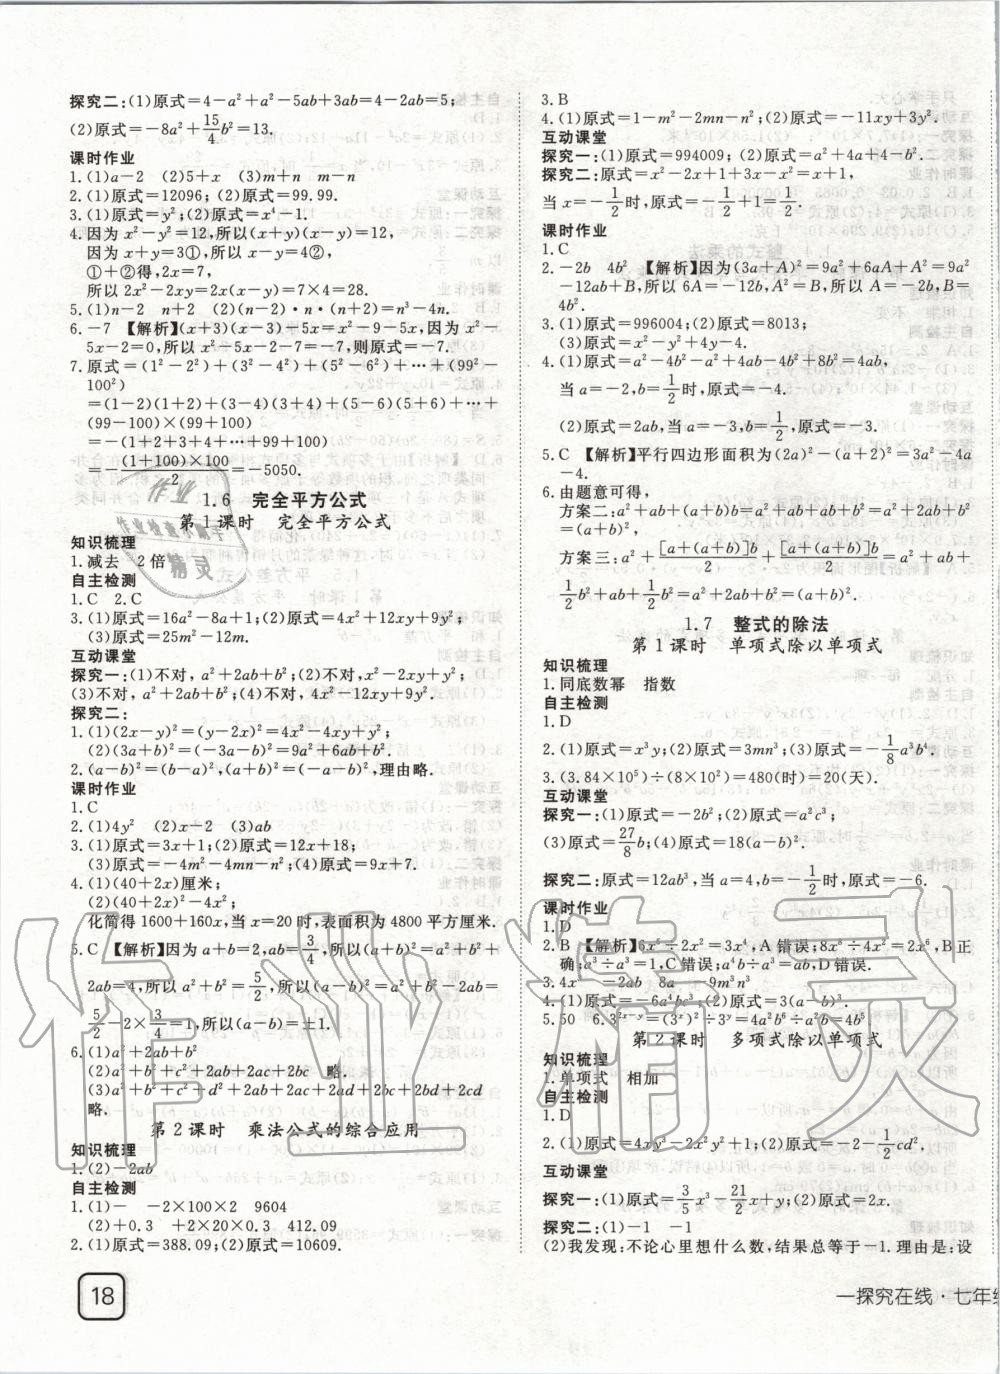 探究二:(1)原式=4-a²+a²-5ab+3ab=4-2ab=5;
(2)原式=-8a²+15/4b²=13.
课时作业
1.(1)a-2 (2)5+x (3)m+n m-n
2.(1)原式=12096;(2)原式=99.99.
3.(1)原式=y²;(2)原式=x⁴-1.
4.因为x²-y²=12,所以(x+y)(x-y)=12,
因为x+y=3①,所以x-y=4②,
①+②得,2x=7,
所以2x²-2xy=2x(x-y)=7×4=28.
5.(1)n-2 n+2 (2)(n-2)·n·(n+2)=n³-4n.
6.-7 【解析】(x+3)(x-3)-5x=x²-9-5x,因为x²-
5x-2=0,所以x²-5x-2-7=-7,则原式=-7.
7.原式=(1²-2²)+(3²-4²)+(5²-6²)+…+(99²-
100²)
=(1-2)(1+2)+(3-4)(3+4)+(5-6)(5+6)+…+
(99-100)×(99+100)
=-(1+2+3+4+…+99+100)
=-(1+100)×100/2=-5050.
1.6 完全平方公式
第1课时 完全平方公式
知识梳理
1.减去 2倍
自主检测
1.C 2.C
3.(1)原式=16a²-8a+1;(2)原式=4x²+12xy+9y²;
(3)原式=25m²-12m.
互动课堂
探究一:(1)不对,a²+2ab+b²;(2)不对,x²-2xy+y²;
(3)不对,a²+2ab+b²;(4)不对,4x²-12xy+9y².
探究二:
1.(1)(2x-y)²=(y-2x)²=4x²-4xy+y²;
(2)(3a+b)²=(-3a-b)²=9a²+6ab+b².
2.(a-b)²=(b-a)²,(a+b)²=(-a-b)²,理由略.
课时作业
1.C
2.(1)4y² (2)x-2 (3)ab
3.(1)原式=3x+1;(2)原式=12x+18;
(3)原式=-4m²-4mn-n²;(4)原式=9x+7.
4.(1)(40+2x)厘米;
(2)(40+2x)²-4x²;
化简得1600+160x,当x=20时,表面积为4800平方厘米.
5.C 【解析】因为a+b=2,ab=3/4,所以(a+b)²=a²+b²+
2ab=4,所以a²+b²=5/2,所以(a-b)²=a²+b²-2ab=
5/2-2×3/4=1,所以(a-b)=±1.
6.(1)a²+2ab+b²
(2)a²+b²+c²+2ab+2ac+2bc 略.
(3)a²+b²+c²+d²+2ab+2ac+2ad+2bc+2bd+2cd
略.
第2课时 乘法公式的综合应用
知识梳理
1.(2)-2ab
自主检测
1.(1)- -2×100×2 9604
(2)+0.3 +2×20×0.3 412.09
2.(1)原式=388.09;(2)原式=10609.
18
3.B
4.(1)原式=1-m²-2mn-n²;(2)原式=-11xy+3y².
互动课堂
探究一:(1)原式=994009;(2)原式=a²+4a+4-b².
探究二:原式=x²-2x+1+3x-x²=x+1,
当x=-1/2时,原式=-1/2+1=1/2.
课时作业
1.C
2.-2b 4b² 【解析】因为(3a+A)²=9a²+6aA+A²=9a²
-12ab+B,所以6A=-12b,A²=B,所以A=-2b,B=
4b².
3.(1)原式=996004;(2)原式=8013;
(3)原式=x²-y²+4y-4.
4.(1)原式=a²-4b²-a²+4ab-4b²+8b²=4ab,
当a=-2,b=1/2时,原式=-4.
(2)原式=2ab,当a=-3,b=1/2,原式=-3.
5.C 【解析】平行四边形面积为(2a)²-(a+2)²=3a²-4a
-4.
6.由题意可得,
方案二:a²+ab+(a+b)b=a²+ab+ab+b²=a²+2ab+b²
=(a+b)²,
方案三:a²+[a+(a+b)]b/2+[a+(a+b)]b/2=a²+ab+
1/2b²+ab+1/2b²=a²+2ab+b²=(a+b)².
1.7 整式的除法
第1课时 单项式除以单项式
知识梳理
1.同底数幂 指数
自主检测
1.D
2.(1)原式=x³y;(2)原式=3mn³;(3)原式=-1/8a³b⁴.
3.(3.84×10⁵)÷(8×10²)=480(时)=20(天).
互动课堂
探究一:(1)原式=-2b²;(2)原式=a²c³;
(3)原式=27/8b;(4)原式=18(a-b)².
探究二:原式=12ab³,当a=4,b=-1/2时,原式=-6.
课时作业
1.D
2.B 【解析】6x⁶÷2x²=3x⁴,A错误;8x⁸÷4x²=2x⁶,B正
确;a³÷a³=1,C错误;a⁴b÷a³=ab,D错误.
3.4x 2ab 8a 9m³n³
4.(1)原式=-6a⁴bc³.(2)原式=3(a-b)³.
5.50 6.3²ˣ⁻ʸ=(3ˣ)²÷3ʸ=4a²b⁶÷ab=4b⁵
第2课时 多项式除以单项式
知识梳理
1.单项式 相加
自主检测
1.D
2.(1)原式=4xy³-2x²y²+1;(2)原式=2-1/2cd².
互动课堂
探究一:(1)原式=3/5x³-21/2x+y;(2)原式=2x.
探究二:(1)-1 -1
(2)我发现:不论心里想什么数,结果总等于-1.理由是:设
一探究在线·七年级